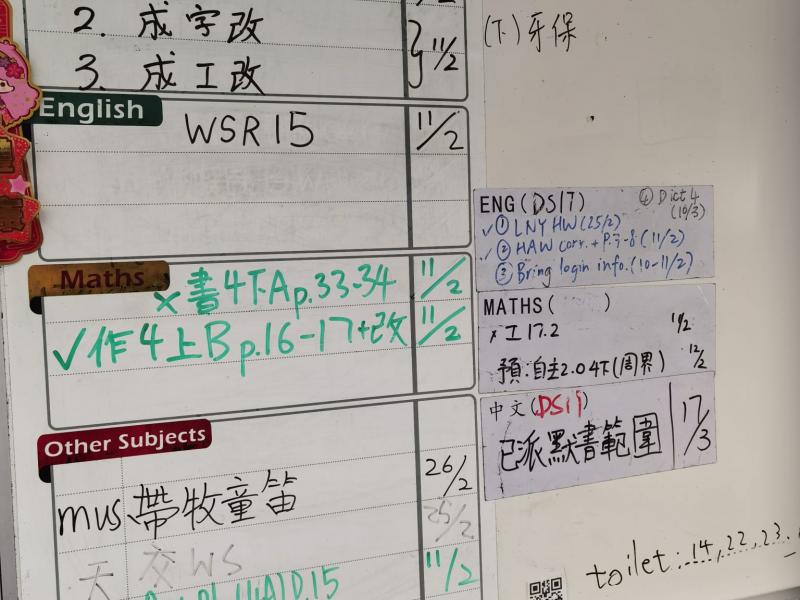 2. 成字改
3. 成工改
} 11/2
English
WSR15 11/2
Maths
x 書4下A p.33-34 11/2
✓作4上B p.16-17+改 11/2
Other Subjects
mus. 帶牧童笛 26/2
25/2
天 交WS
p.15 11/2
(下)牙保
ENG(DS17) ④ Dict 4
(10/3)
✓① LNY HW (25/2)
✓② HAW corr. + P.7-8 (11/2)
③ Bring login info. (10-11/2)
MATHS( )
x 工17.2 11/2
預:自主2.0 4下(周界) 12/2
中文(DS11)
已派默書範圍 17/3
toilet: 14, 22, 23